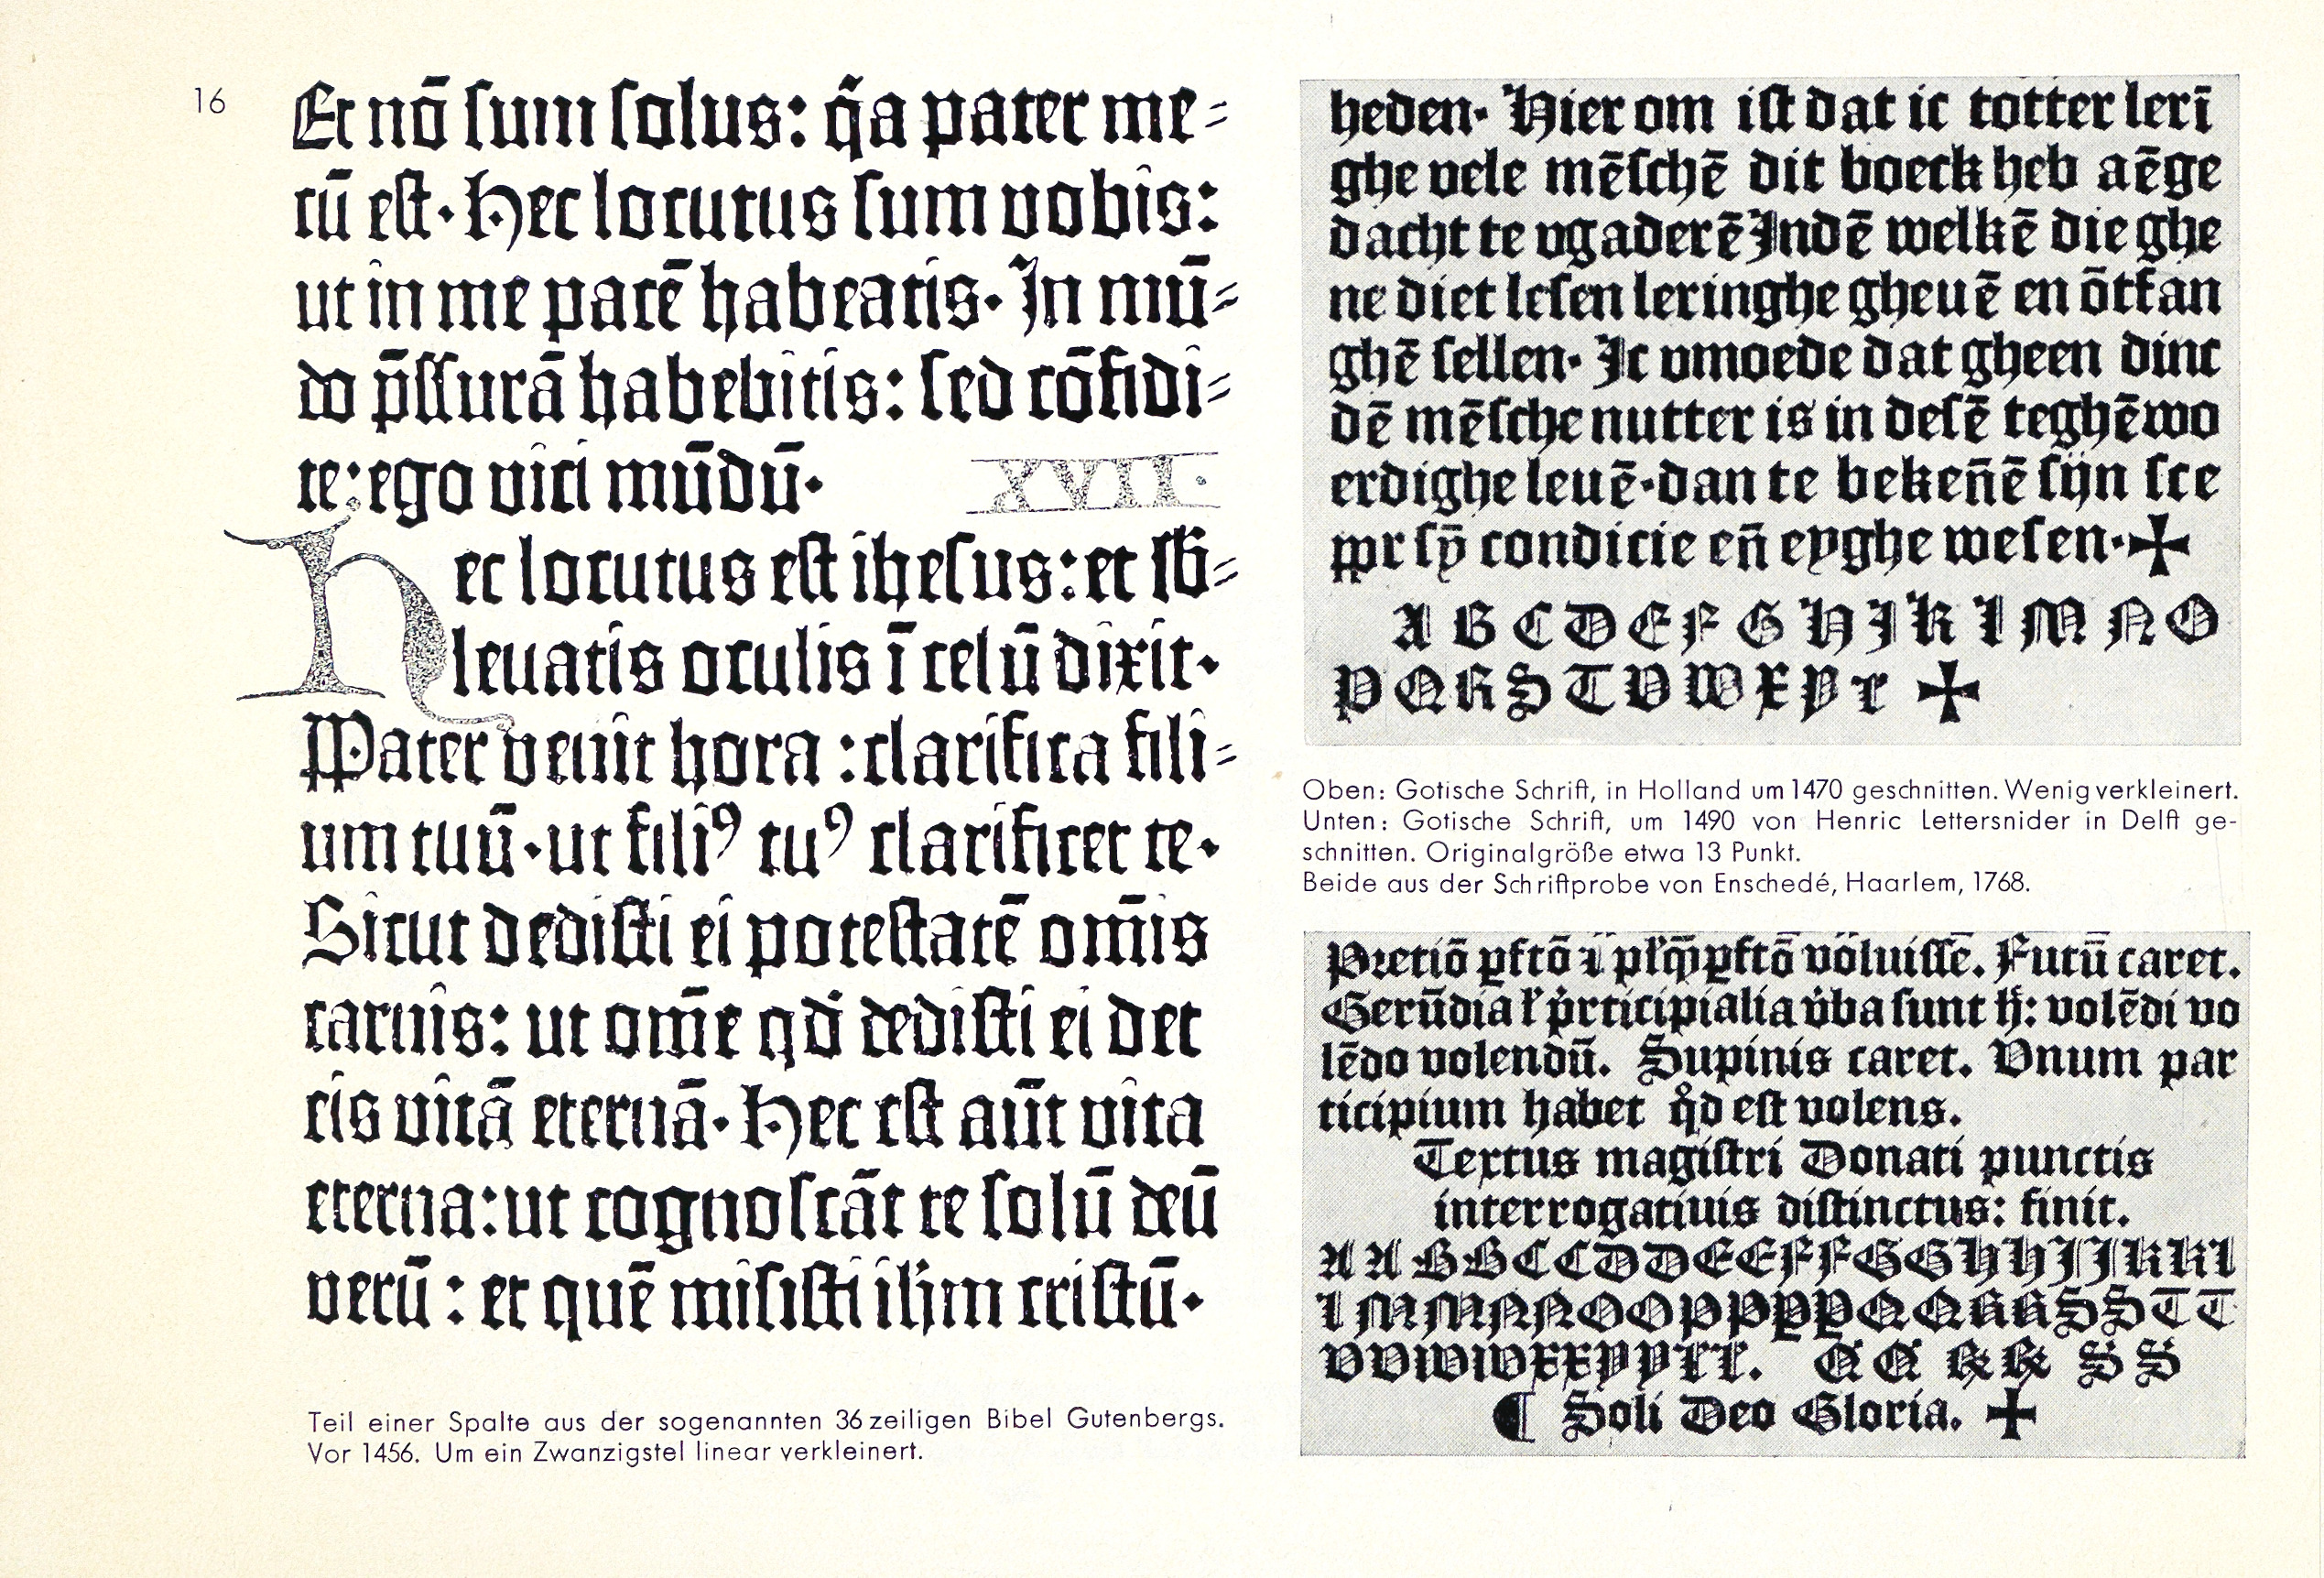 16
Et nō ſum ſolus: q̄a pater me⸗
cū eſt· Hec locutus ſum vobis:
ut in me pacē habeatis· In mū⸗
do p̄ſſurā habebitis: ſed cōfidi⸗
te: ego vici mūdū· XVII·
Hec locutus eſt iheſus: et ſb⸗
leuatis oculis ī celū dixit·
Pater venit hora : clarifica fili⸗
um tuū· ut filiꝰ tuꝰ clarificet te·
Sicut dediſti ei poteſtatē om̄is
carnis: ut om̄e qd̄ dediſti ei det
eis vitā eternā· Hec eſt aūt vita
eterna: ut cognoſcāt te ſolū deū
verū : et quē miſiſti ihm criſtū·
Teil einer Spalte aus der sogenannten 36zeiligen Bibel Gutenbergs.
Vor 1456. Um ein Zwanzigstel linear verkleinert.
heden· Hier om iſt dat ic totter lerī
ghe vele mēſchē dit boeck heb aēge
dacht te vgaderē Indē welkē die ghe
ne diet leſen leringhe gheuē en ōtfan
ghē ſellen· Ic vmoede dat gheen dinc
dē mēſche nutter is in deſē teghēwo
erdighe leuē· dan te bekeñē ſijn ſce
ppr ſȳ condicie eñ eyghe weſen· ✠
A B C D E F G H I K L M N O
P Q R S T V W X Y Z ✠
Oben: Gotische Schrift, in Holland um 1470 geschnitten. Wenig verkleinert.
Unten: Gotische Schrift, um 1490 von Henric Lettersnider in Delft ge-
schnitten. Originalgröße etwa 13 Punkt.
Beide aus der Schriftprobe von Enschedé, Haarlem, 1768.
Pꝛetiō ꝑfctō voluiſſē. Futū caret.
Gerūdia participialia v̄ba ſunt volēdi vo
lēdo volendū. Supinis caret. Vnum par
ticipium habet qd̄ eſt volens.
Textus magiſtri Donati punctis
interrogatiuis diſtinctus: finit.
A A B B C C D D E E F F G G H H I I K K L
L M M N N O O P P P P Q Q R R S S T T
V V W W X X Y Y Z Z. Q Q R R S S
¶ Soli Deo Gloria. ✠